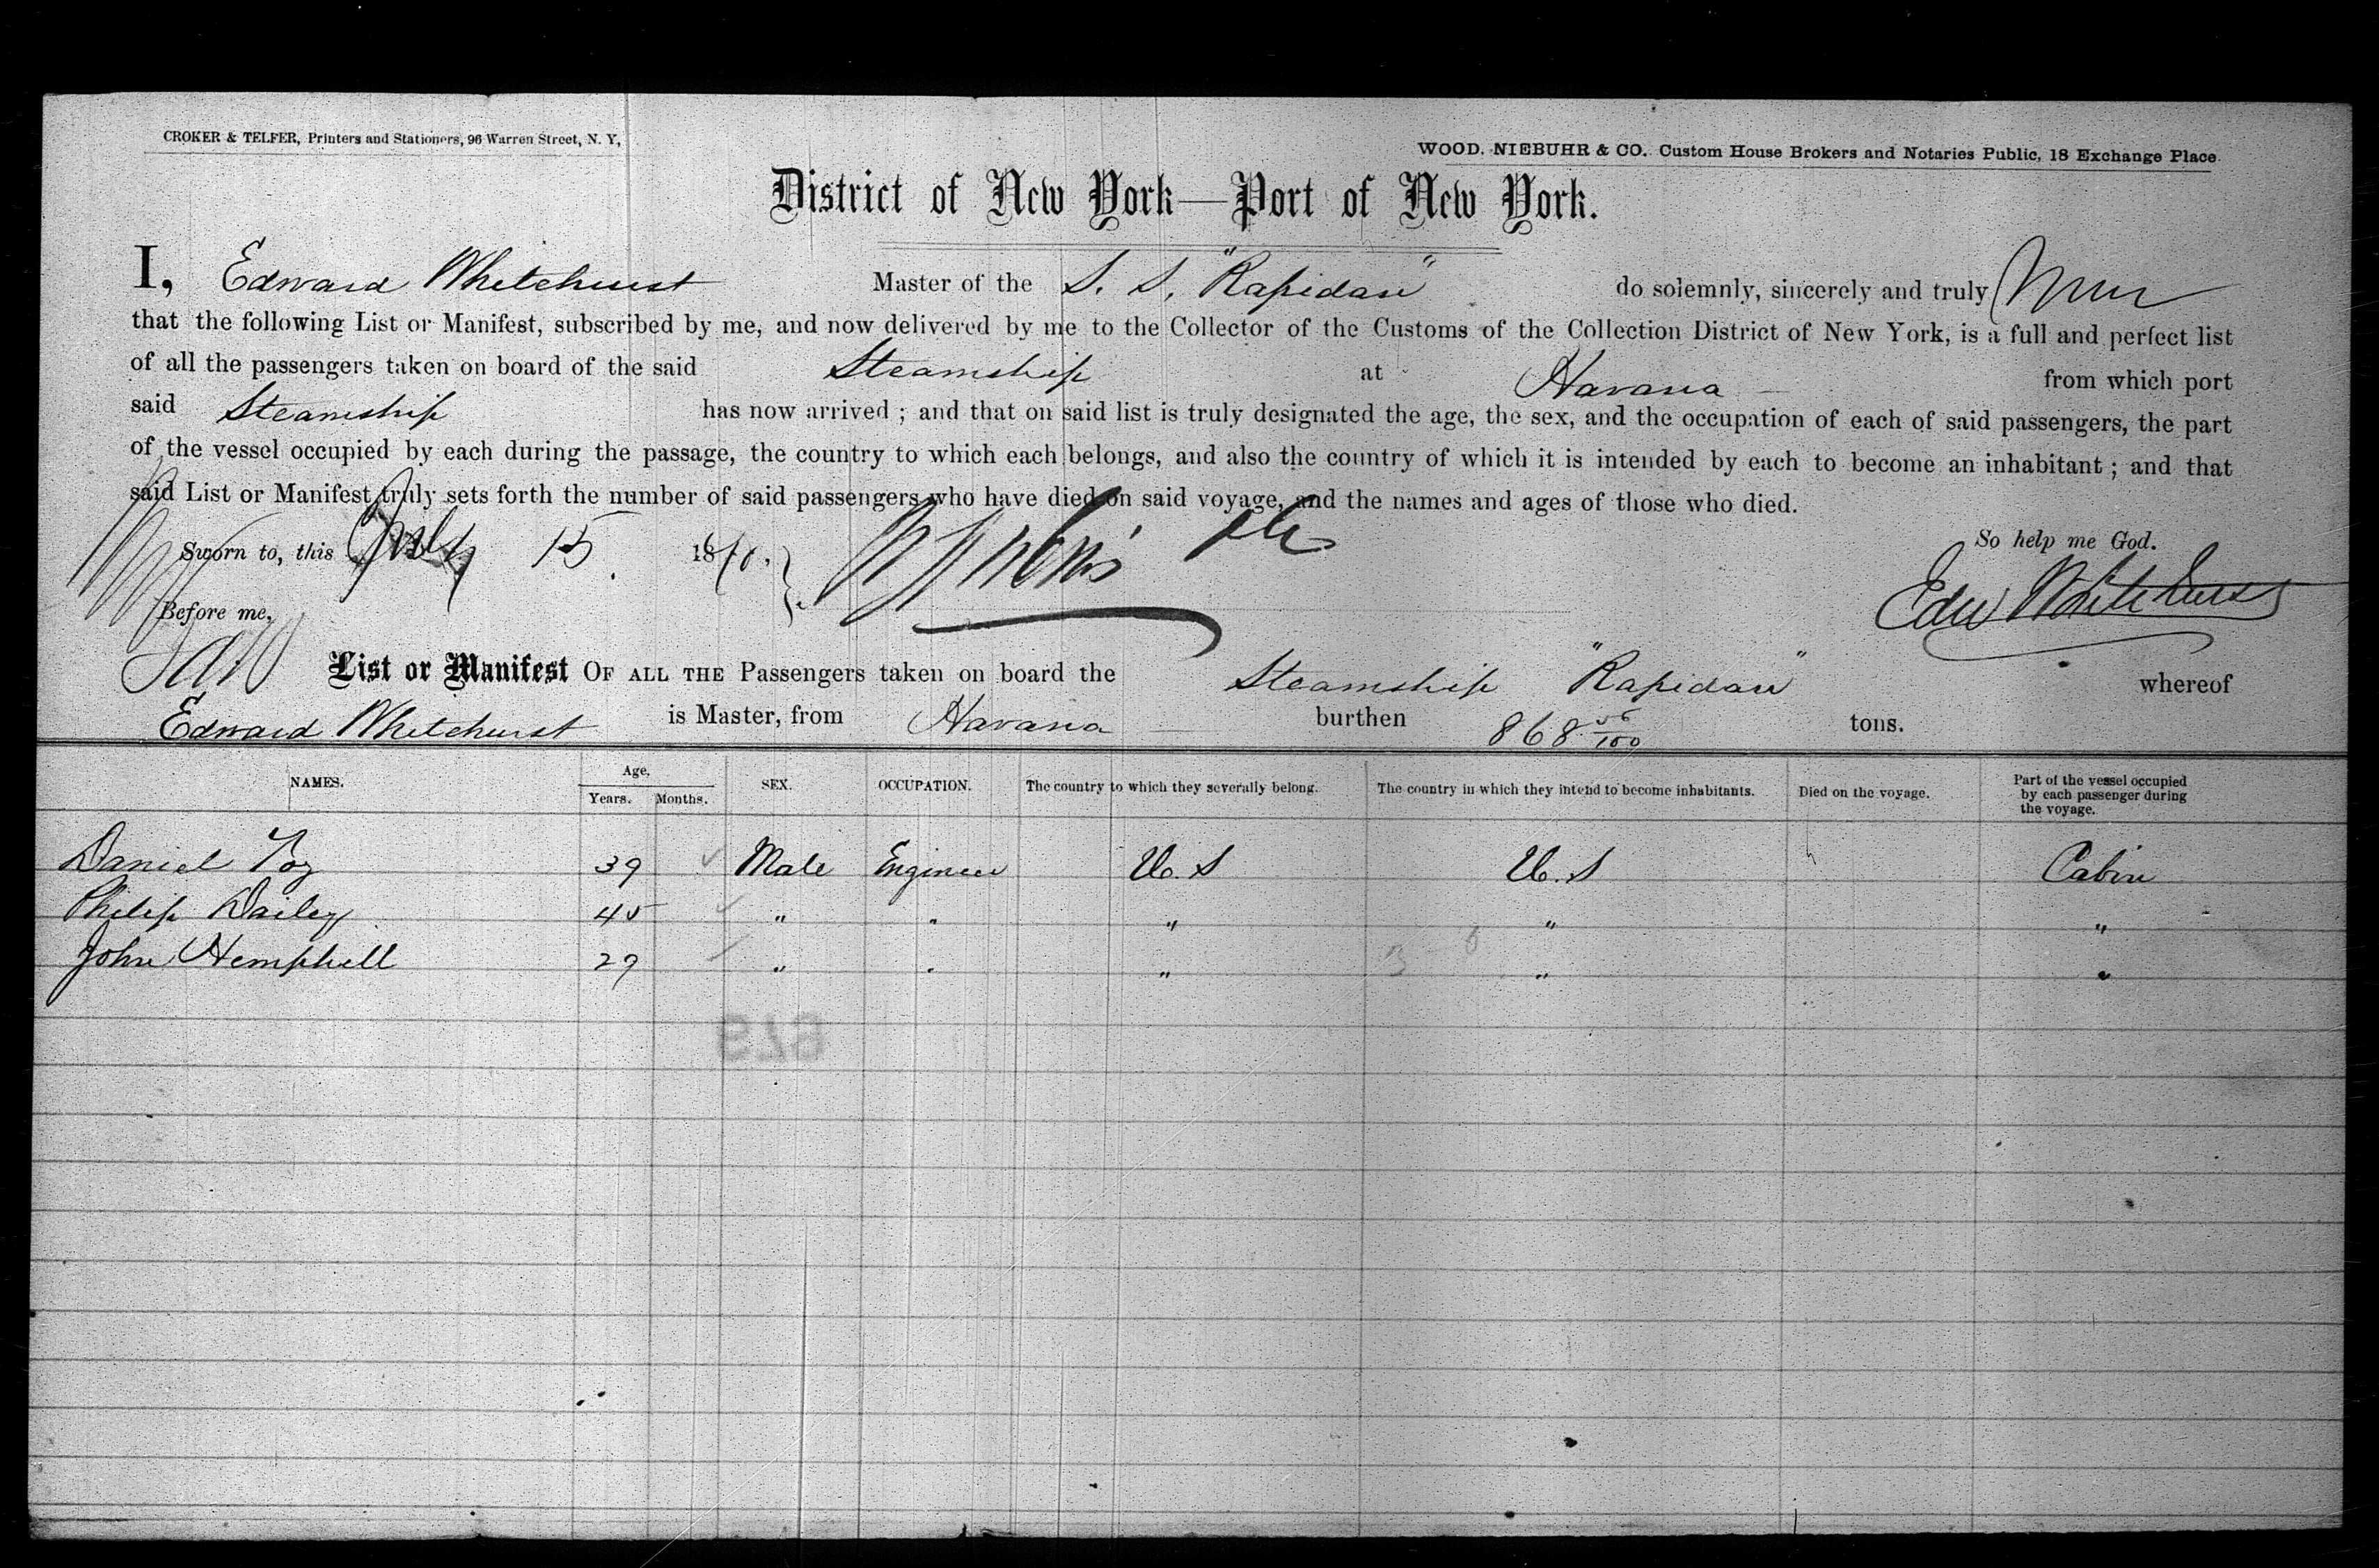 CROKER & TELFER, Printers and Stationers, 96 Warren Street, N. Y,
WOOD. NIEBUHR & CO. Custom House Brokers and Notaries Public, 18 Exchange Place
District of New York—Port of New York.
I, Edward Whitehurst Master of the S. S. "Rapidan" do solemnly, sincerely and truly
that the following List or Manifest, subscribed by me, and now delivered by me to the Collector of the Customs of the Collection District of New York, is a full and perfect list
of all the passengers taken on board of the said Steamship at Havana from which port
said Steamship has now arrived ; and that on said list is truly designated the age, the sex, and the occupation of each of said passengers, the part
of the vessel occupied by each during the passage, the country to which each belongs, and also the country of which it is intended by each to become an inhabitant ; and that
said List or Manifest truly sets forth the number of said passengers who have died on said voyage, and the names and ages of those who died.
So help me God.
Sworn to, this July 15 1870.
Edw Whitehurst
Before me,
List or Manifest OF ALL THE Passengers taken on board the Steamship "Rapidan" whereof
Edward Whitehurst is Master, from Havana burthen 868 56/100 tons.
NAMES. Age, Years. Months. SEX. OCCUPATION. The country to which they severally belong. The country in which they intend to become inhabitants. Died on the voyage. Part of the vessel occupied by each passenger during the voyage.
Daniel Foy 39 Male Engineer U. S U. S Cabin
Philip Dailey 45 " " " " "
John Hemphill 29 " " " " "
679